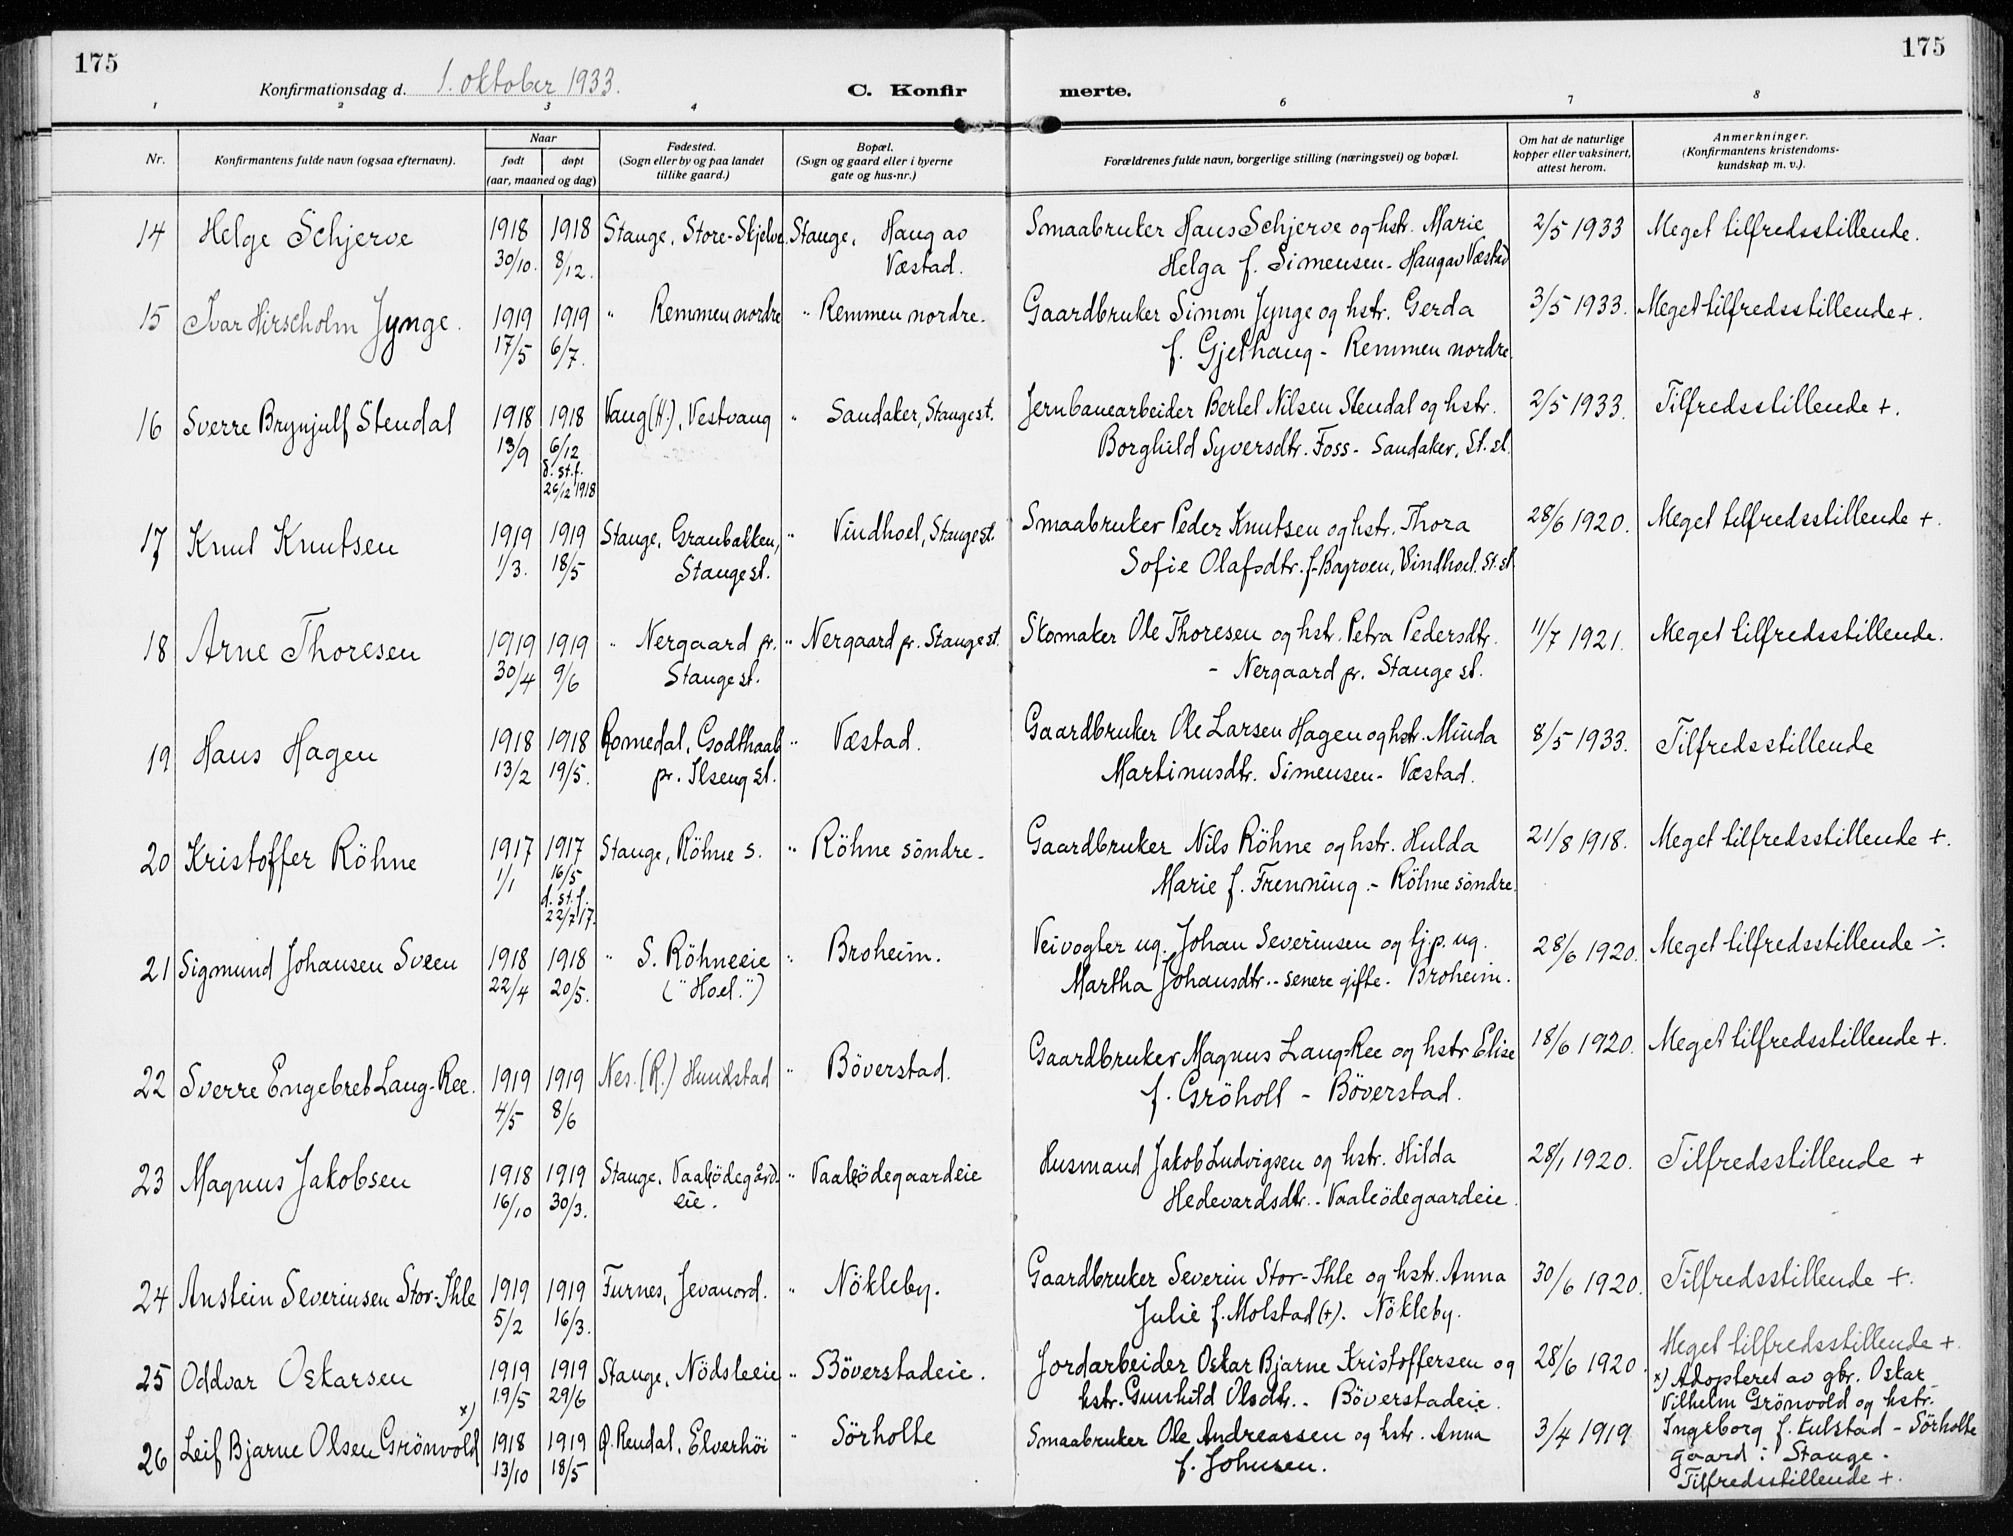 175
175
Konfirmationsdag d. 1. oktober 1933.
C. Konfir
merte.
1 2 3 4 6 7 8
Nr.
Konfirmantens fulde navn (ogsaa efternavn).
Naar
født
døpt
(aar, maaned og dag)
Fødested.
(Sogn eller by og paa landet
tillike gaard.)
Bopæl.
(Sogn og gaard eller i byerne
gate og hus-nr.)
Forældrenes fulde navn, borgerlige stilling (næringsvei) og bopæl.
Om hat de naturlige
kopper eller vaksinert,
attest herom.
Anmerkninger.
(Konfirmantens kristendoms-
kundskap m. v.).
14 Helge Schjerve 1918 1918 Stange, Store-Skjelve. Stange, Haug av Smaabruker Hans Schjerve og hstr. Marie 2/5 1933 Meget tilfredsstillende.
30/10. 8/12. Væstad. Helga f. Simensen - Haug av Væstad
15 Ivar Hirscholm Jynge. 1919 1919 " Remmen nordre " Remmen nordre. Gaardbruker Simon Jynge og hstr. Gerda 3/5 1933. Meget tilfredsstillende +.
17/5 6/7. f. Gjethaug - Remmen nordre.
16 Sverre Brynjulf Stendal 1918 1918 Vang (H.), Vestvang " Sandaker, Stange st. Jernbanearbeider Bertel Nilsen Stendal og hstr. 2/5 1933. Tilfredsstillende +.
13/9 6/12 Borghild Syversdtr. Foss - Sandaker, St. st.
d. st. f.
26/12 1918
17 Knut Knutsen 1919 1919 Stange, Granbakken, " Vindhoel, Stange st. Smaabruker Peder Knutsen og hstr. Thora 28/6 1920. Meget tilfredsstillende +.
1/3. 18/5 Stange st. Sofie Olafsdtr. f. Bagroen, Vindhoel. St. st.
18 Arne Thoresen 1919 1919 " Nergaard pr. " Nergaard pr. Stange st. Skomaker Ole Thoresen og hstr. Petra Pedersdtr. 11/7 1921. Meget tilfredsstillende.
30/4 9/6 Stange st. - Nergaard pr. Stange st.
19 Hans Hagen 1918 1918 Romedal, Godthaab " Væstad. Gaardbruker Ole Larsen Hagen og hstr. Minda 8/5 1933. Tilfredsstillende
13/2 19/5. pr. Ilseng st. Martinusdtr. Simensen - Væstad.
20 Kristoffer Röhne 1917 1917 Stange, Röhne s. " Röhne söndre - Gaardbruker Nils Röhne og hstr. Hulda 21/8 1918. Meget tilfredsstillende +.
1/1 16/5 Marie f. Frenning - Röhne söndre.
d. st. f.
22/7 17.
21 Sigmund Johansen Sveen 1918 1918 " S. Röhneeie " Broheim. Veivogter ug. Johan Severinsen og tj.p. ug. 28/6 1920. Meget tilfredsstillende ÷.
22/4 20/5. ("Hoel.") Martha Johansdtr. - senere gifte. Broheim.
22 Sverre Engebret Lang-Ree. 1919 1919 Nes. (R.) Hundstad " Böverstad. Gaardbruker Magnus Lang-Ree og hstr Elise 18/6 1920. Meget tilfredsstillende +.
4/5 8/6 f. Gröholt - Böverstad.
23 Magnus Jakobsen 1918 1919 Stange. Vaaleödegård " Vaaleödegaardeie Husmand Jakob Ludvigsen og hstr. Hilda 28/1 1920. Tilfredsstillende +
16/10 30/3. eie. Hedevardsdtr. - Vaaleödegaardeie.
24 Anstein Severinsen Stor-Ihle 1919 1919 Furnes, Jevanord. " Nökleby. Gaardbruker Severin Stor-Ihle og hstr. Anna 30/6 1920. Tilfredsstillende +.
5/2 16/3. Julie f. Molstad (+). Nökleby.
25 Oddvar Oskarsen 1919 1919 Stange, Nödsleeie " Böverstadeie. Jordarbeider Oskar Bjarne Kristoffersen og 28/6 1920. Meget tilfredsstillende +.
19/5 29/6 hstr. Gunhild Olsdtr. - Böverstadeie. x) Adopteret av gbr. Oskar
x) Vilhelm Grönvold og hstr.
26 Leif Bjarne Olsen Grönvold 1918 1919 Ø. Rendal, Elverhöi " Sörholte Smaabruker Ole Andreassen og hstr. Anna 3/4 1919 Ingeborg f. Kulstad - Sörholte
13/10 18/5 f. Johnsen. gaard i Stange.
Tilfredsstillende +.